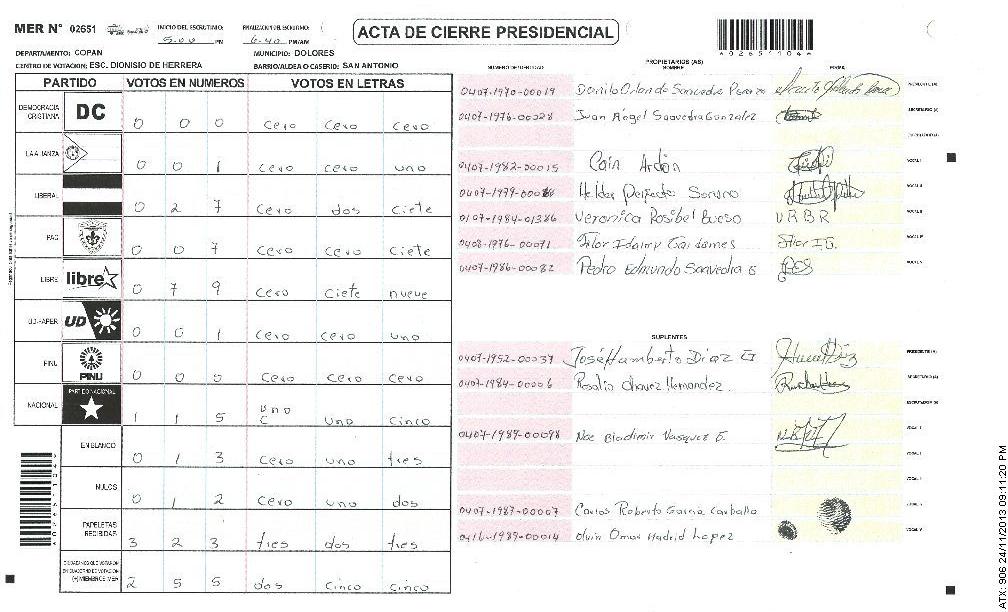 MER N° 02651
INICIO DEL ESCRUTINIO: 5:00 PM
FINALIZACION DEL ESCRUTINIO: 6:40 PM/AM
ACTA DE CIERRE PRESIDENCIAL
A02651104A
DEPARTAMENTO: COPAN
MUNICIPIO: DOLORES
CENTRO DE VOTACION: ESC. DIONISIO DE HERRERA
BARRIO/ALDEA O CASERIO: SAN ANTONIO
PARTIDO VOTOS EN NUMEROS VOTOS EN LETRAS
DEMOCRACIA CRISTIANA DC 0 0 0 cero cero cero
LA ALIANZA 0 0 1 cero cero uno
LIBERAL 0 2 7 cero dos ciete
PAC 0 0 7 cero cero ciete
LIBRE libre 0 7 9 cero ciete nueve
UD-FAPER UD 0 0 1 cero cero uno
PINU PINU 0 0 0 cero cero cero
NACIONAL PARTIDO NACIONAL 1 1 5 uno uno cinco
EN BLANCO 0 1 3 cero uno tres
NULOS 0 1 2 cero uno dos
PAPELETAS RECIBIDAS 3 2 3 tres dos tres
CIUDADANOS QUE VOTARON EN CUADERNO DE VOTACION (+) MIEMBROS MER 2 5 5 dos cinco cinco
NUMERO DE IDENTIDAD PROPIETARIOS (AS) NOMBRE FIRMA
0407-1970-00019 Danilo Orlando Saavedra PRESIDENTE (A)
0407-1976-00028 Juan Ángel Saavedra Gonzalez SECRETARIO (A)
ESCRUTADOR (A)
0407-1982-00015 Cain Ardón VOCAL I
0407-1979- Helder Perfecto Soriano VOCAL II
0107-1984-01386 Veronica Rosibel Bueso V.R.B.R VOCAL III
0408-1976-00071 Flor Idalmy VOCAL IV
0407-1986-00082 Pedro Edmundo Saavedra G VOCAL V
SUPLENTES
0407-1952-00037 José Humberto Diaz G PRESIDENTE (A)
0407-1984-0006 Rosalio Chavez Hernandez. SECRETARIO (A)
ESCRUTADOR (A)
0407-1989-00098 Noe Bladimir Vasquez VOCAL I
VOCAL II
0407-1987-00007 Carlos Roberto Garcia Carballo
0416-1989-00014 Olvin Omar Madrid Lopez VOCAL V
ATX: 906 24/11/2013 09:11:20 PM